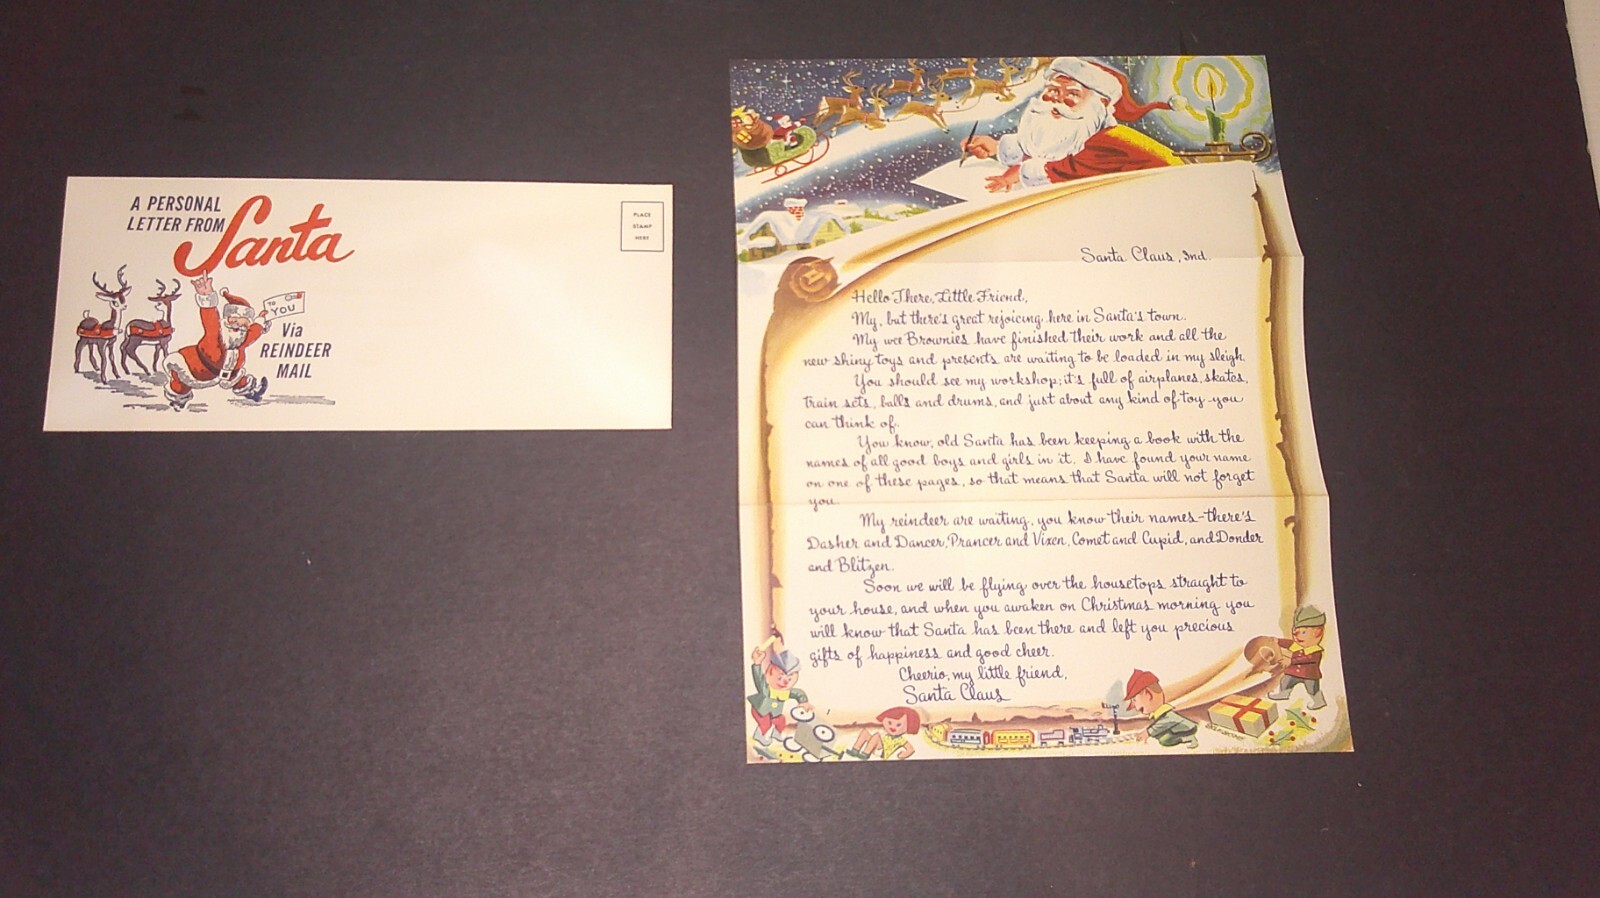 A PERSONAL
LETTER FROM
Santa
PLACE
STAMP
HERE
TO
YOU
Via
REINDEER
MAIL
Santa Claus, Ind.
Hello There, Little Friend,
My, but there's great rejoicing here in Santa's town.
My wee Brownies have finished their work and all the
new shiny toys and presents are waiting to be loaded in my sleigh.
You should see my workshop; it's full of airplanes, skates,
train sets, balls and drums, and just about any kind of toy you
can think of.
You know, old Santa has been keeping a book with the
names of all good boys and girls in it. I have found your name
on one of these pages, so that means that Santa will not forget
you.
My reindeer are waiting, you know their names-there's
Dasher and Dancer, Prancer and Vixen, Comet and Cupid, and Donder
and Blitzen.
Soon we will be flying over the housetops straight to
your house, and when you awaken on Christmas morning you
will know that Santa has been there and left you precious
gifts of happiness and good cheer.
Cheerio, my little friend,
Santa Claus